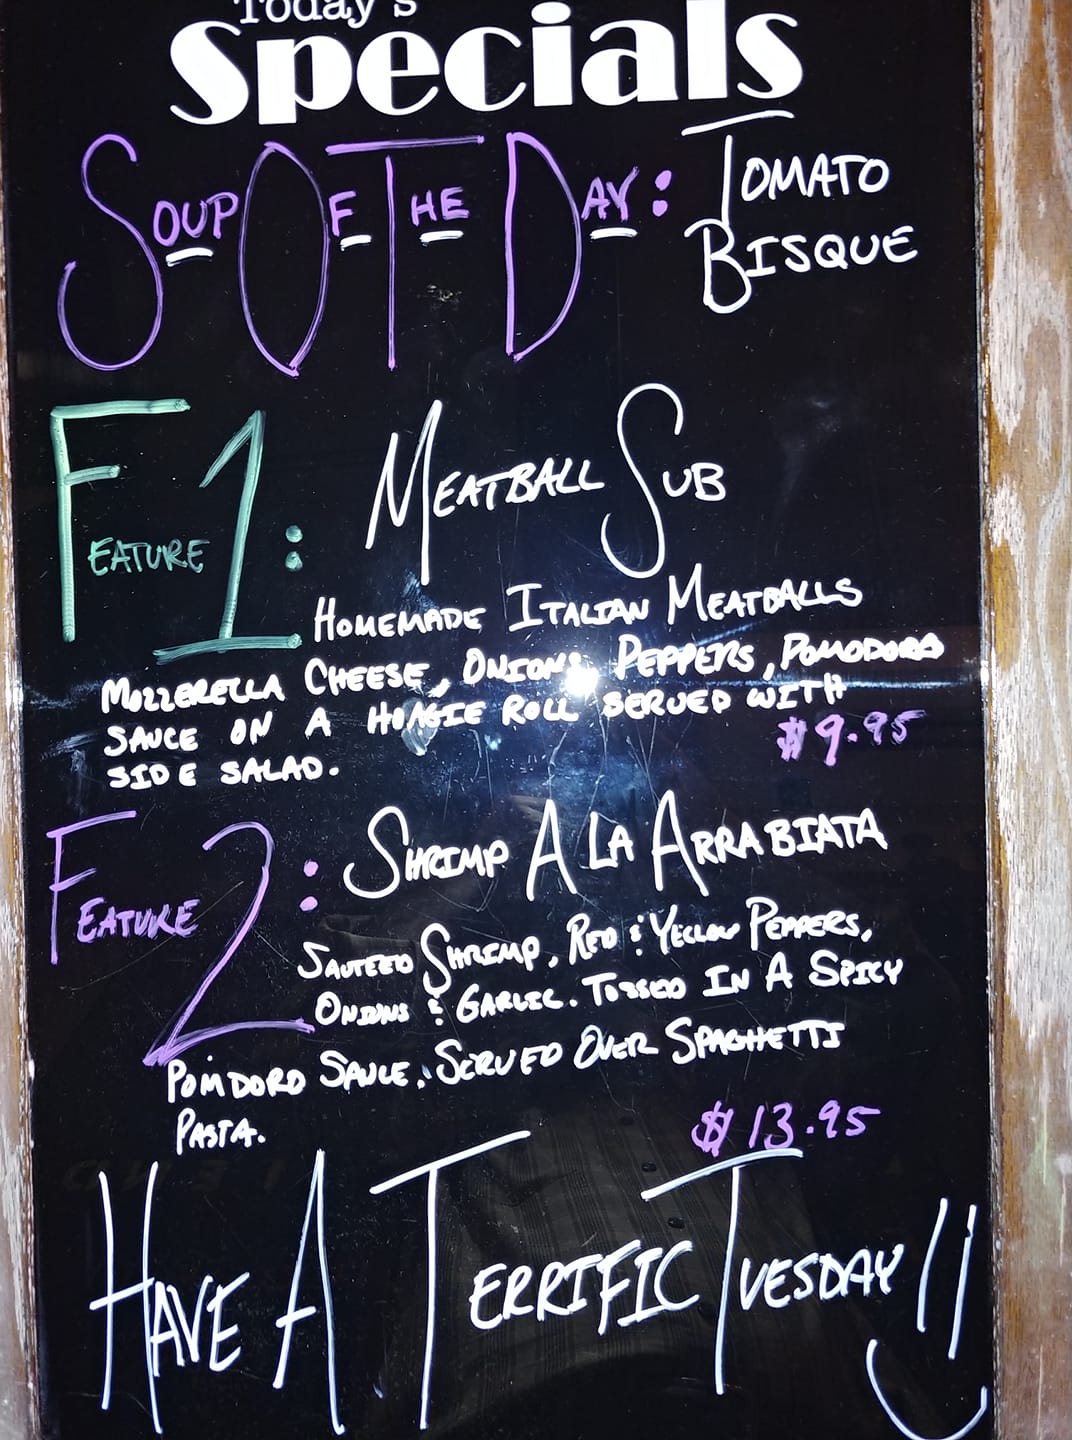 Today's
Specials
SOUP OF THE DAY: TOMATO
BISQUE
FEATURE 1: MEATBALL SUB
HOMEMADE ITALIAN MEATBALLS
MOZZERELLA CHEESE, ONIONS, PEPPERS, POMODORO
SAUCE ON A HOAGIE ROLL SERVED WITH
SIDE SALAD.
$9.95
FEATURE 2: SHRIMP A LA ARRABIATA
SAUTEED SHRIMP, RED & YELLOW PEPPERS,
ONIONS & GARLIC. TOSSED IN A SPICY
POMDORO SAUCE. SERVED OVER SPAGHETTI
PASTA.
$13.95
HAVE A TERRIFIC TUESDAY!!